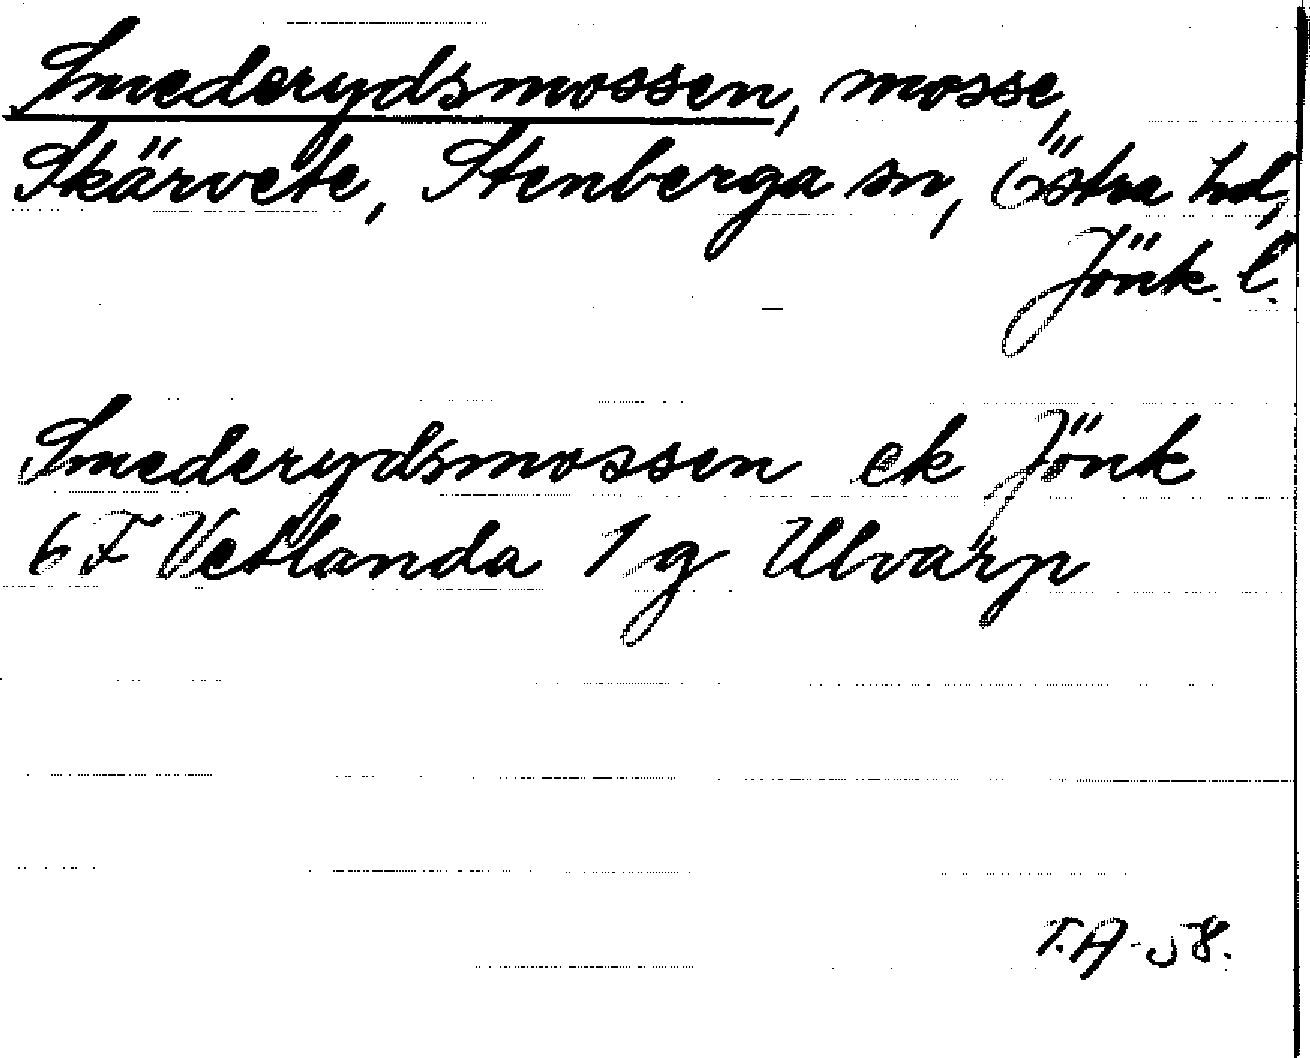 Smederydsmossen, mosse,
Skärvete, Stenberga sn, Östra hd,
Jönk. l.
Smederydsmossen ek Jönk
6 F Vetlanda 1 g Ulvarp
T.A-58.